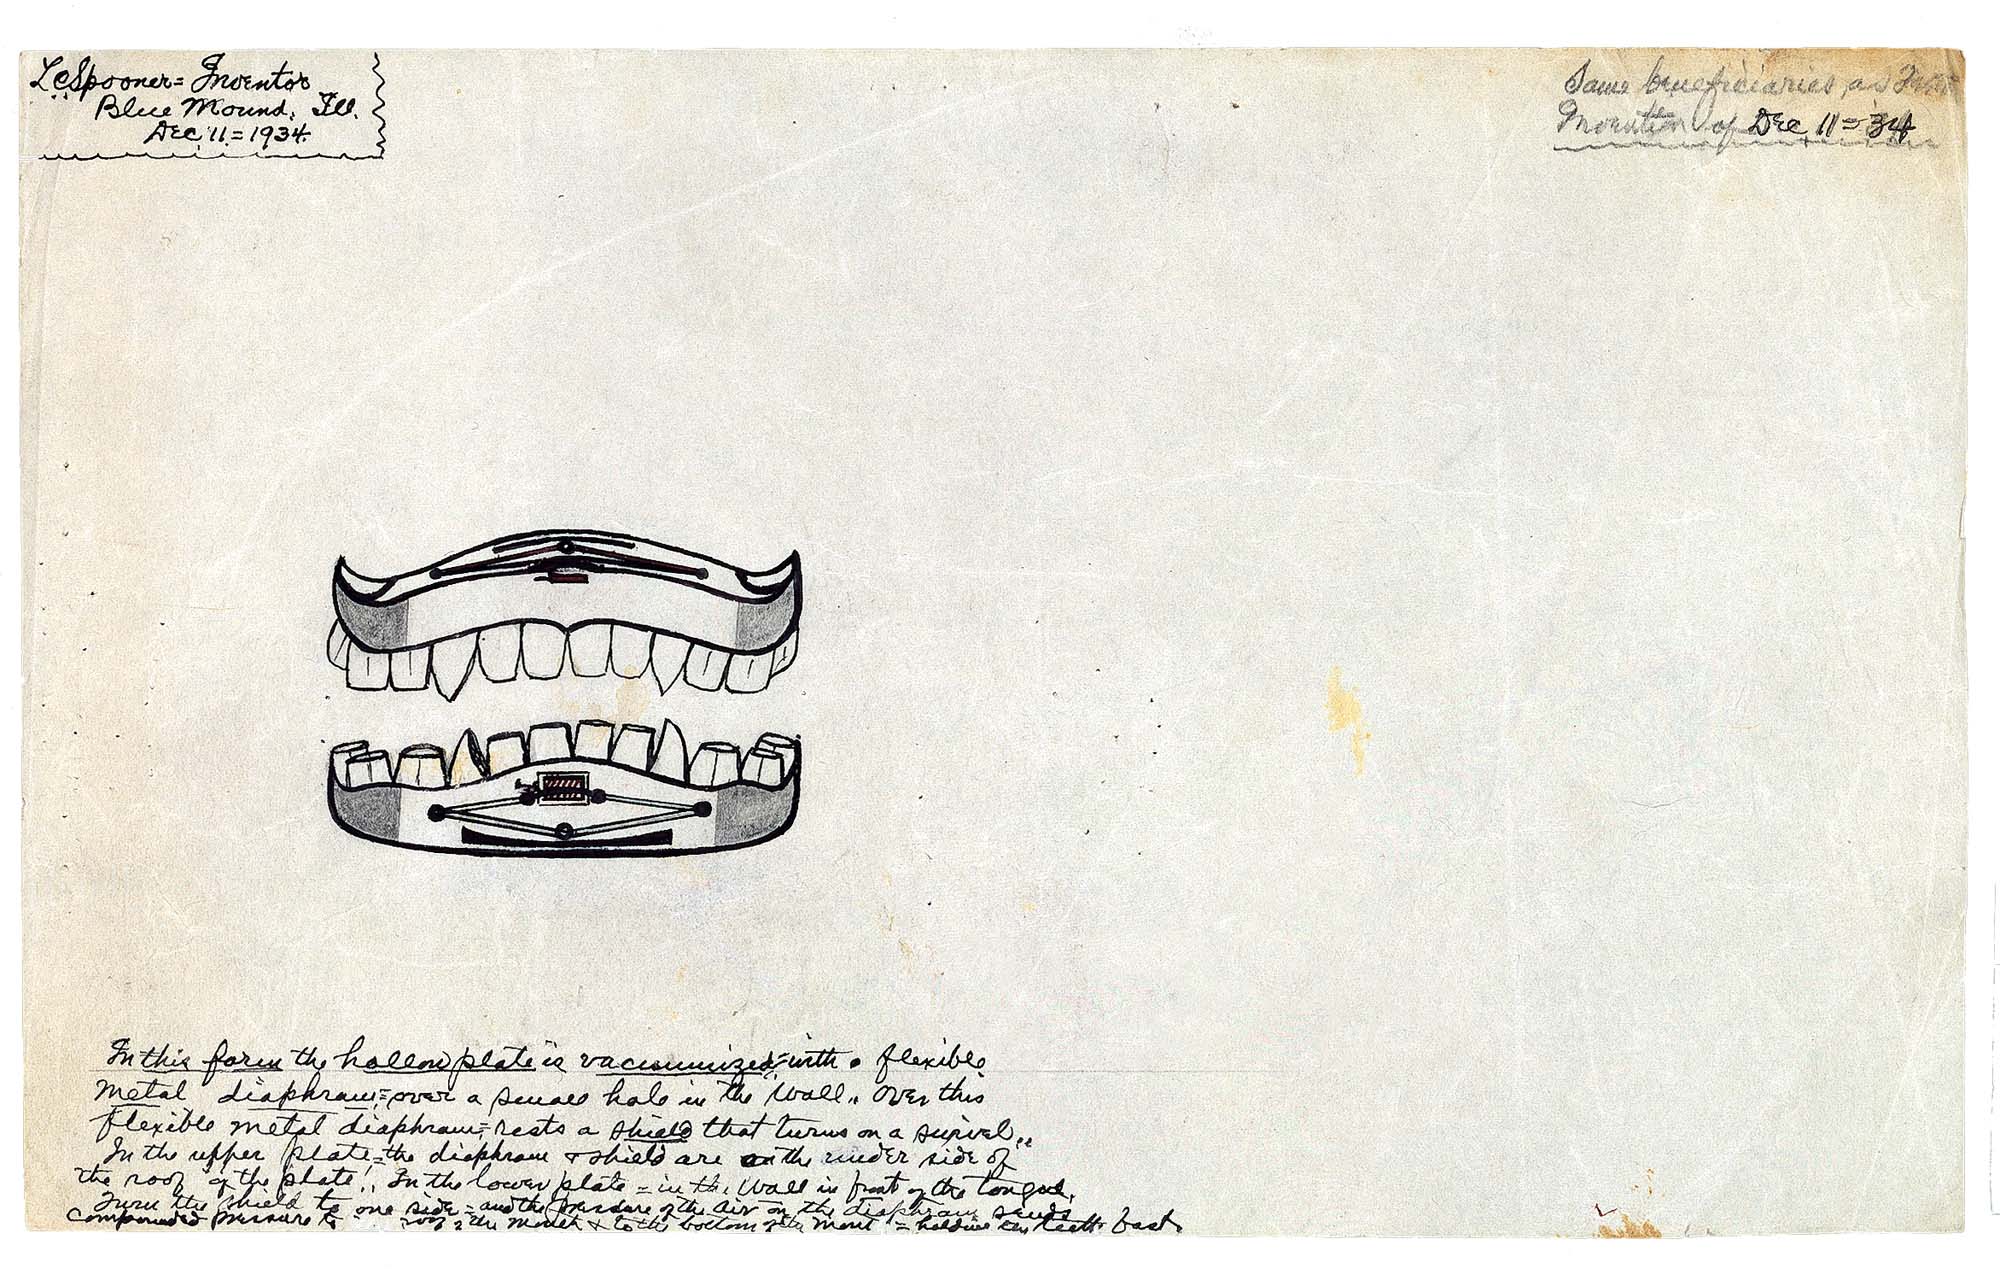 L.C. Spooner = Inventor
Blue Mound, Ill.
Dec 11 = 1934.
Same beneficiaries as
Invention of Dec 11 = 34
In this form the hollow plate is vacuumized = with a flexible
metal diaphram = over a small hole in the wall.. Over this
flexible metal diaphram = rests a shield that turns on a swivel..
In the upper plate = the diaphram & shield are on the under side of
the roof of the plate!.. In the lower plate = in the wall in front of the tongue.
Turn the shield to one side = and the pressure of the air on the diaphram sends
compounded pressure to roof of the mouth & to the bottom of the = holding the teeth fast.